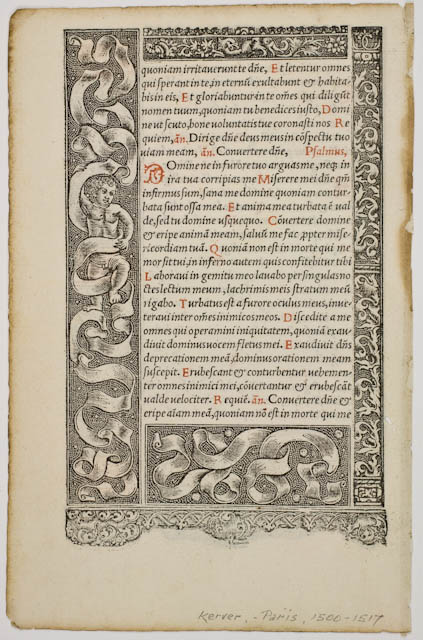 quoniam irritauerunt te dñe, Et letentur omnes
qui sperant in te, in eternũ exultabunt & habita-
bis in eis, Et gloriabuntur in te oẽs qui diligũt
nomen tuum, quoniam tu benedices iusto, Domi
ne ut scuto, bone voluntatis tue coronasti nos Re
quiem, añ. Dirige dñe deus meus in cõspectu tuo
uiam meam, añ. Conuertere dñe, Psalmus,
Domine ne in furore tuo arguas me, neq; in
ira tua corripias me Miserere mei dñe qm̃
infirmus sum, sana me domine quoniam contur-
bata sunt ossa mea. Et anima mea turbata ẽ ual
de, sed tu domine usquequo. Cõuertere domine
& eripe animã meam, saluũ me fac ꝓpter mise-
ricordiam tuã. Quoniã non est in morte qui me
mor sit tui, in inferno autem quis confitebitur tibi
Laboraui in gemitu meo lauabo per singulas no
ctes lectum meum, lachrimis meis stratum meũ
rigabo. Turbatus est a furore oculus meus, inue-
teraui inter omẽs inimicos meos. Discedite a me
omnes qui operamini iniquitatem, quoniã exau-
diuit dominus uocem fletus mei. Exaudiuit dñs
deprecationem meã, dominus orationem meam
suscepit. Erubescant & conturbentur uehemen-
ter omnes inimici mei, cõuertantur & erubescãt
ualde velociter. Requiẽ. añ. Conuertere dñe &
eripe aĩam meã, quoniam nõ est in morte qui me
Kerver, - Paris, 1500-1517